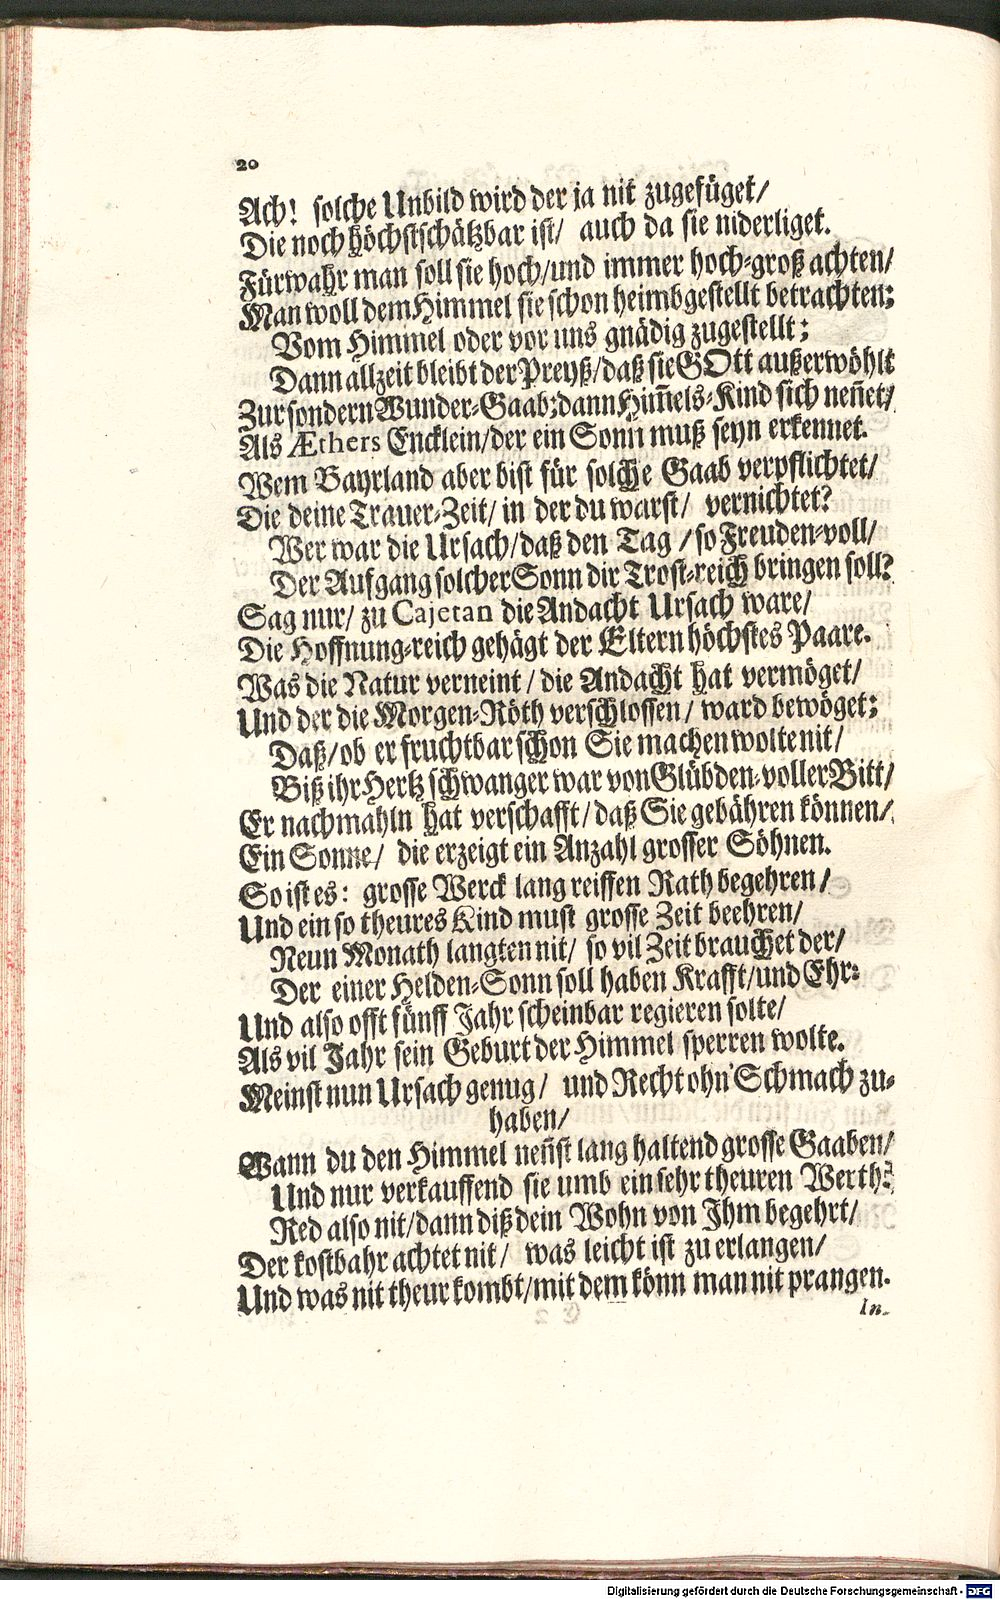 20
Ach! solche Unbild wird der ja nit zugefüget/
Die noch höchstschätzbar ist/ auch da sie niderliget.
Fürwahr man soll sie hoch/und immer hoch-groß achten/
Man woll dem Himmel sie schon heimbgestellt betrachten;
Vom Himmel oder vor uns gnädig zugestellt;
Dann allzeit bleibt der Preyß/daß sie GOtt außerwöhlt
Zur sondern Wunder-Gaab; dann Him̃els-Kind sich neñet/
Als Æthers Encklein/der ein Sonn muß seyn erkennet.
Wem Bayrland aber bist für solche Gaab verpflichtet/
Die deine Trauer-Zeit/ in der du warst/ vernichtet?
Wer war die Ursach/daß den Tag /so Freuden-voll/
Der Aufgang solcher Sonn dir Trost-reich bringen soll?
Sag nur/ zu Cajetan die Andacht Ursach ware/
Die Hoffnung-reich gehägt der Eltern höchstes Paare.
Was die Natur verneint / die Andacht hat vermöget/
Und der die Morgen-Röth verschlossen/ ward bewöget;
Daß/ob er fruchtbar schon Sie machen wolte nit/
Biß ihr Hertz schwanger war von Glübden-voller Bitt/
Er nachmahln hat verschafft/daß Sie gebähren können/
Ein Sonne/ die erzeigt ein Anzahl grosser Söhnen.
So ist es: grosse Werck lang reiffen Rath begehren/
Und ein so theures Kind must grosse Zeit beehren/
Neun Monath langten nit/ so vil Zeit brauchet der/
Der einer Helden-Sonn soll haben Krafft/und Ehr:
Und also offt fünff Jahr scheinbar regieren solte/
Als vil Jahr sein Geburt der Himmel sperren wolte.
Meinst nun Ursach genug/ und Recht ohn' Schmach zu-
haben/
Wann du den Himmel neñst lang haltend grosse Gaaben/
Und nur verkauffend sie umb ein sehr theuren Werth?
Red also nit/dann diß dein Wohn von Ihm begehrt/
Der kostbahr achtet nit/ was leicht ist zu erlangen/
Und was nit theur kombt/mit dem könn man nit prangen.
In-
Digitalisierung gefördert durch die Deutsche Forschungsgemeinschaft - DFG